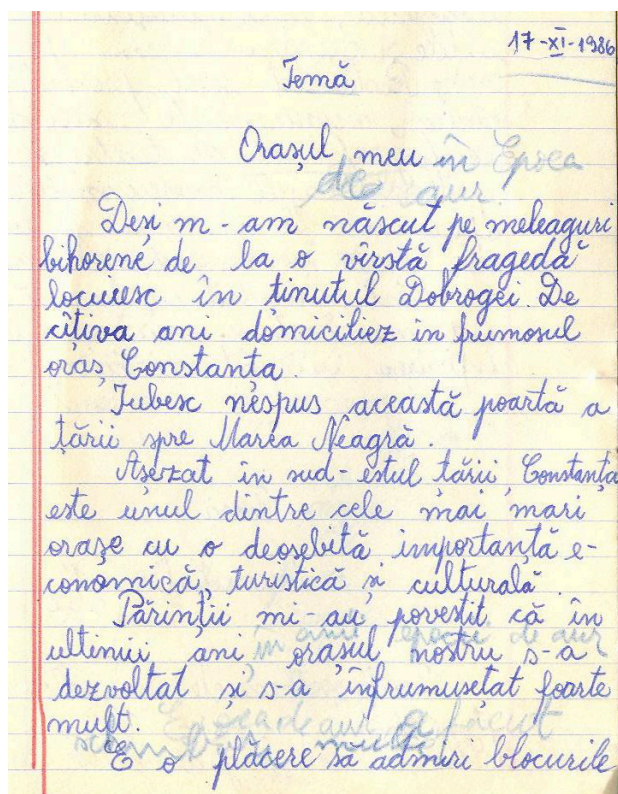 17-XI-1986
Temă
Orașul meu în Epoca
de aur.
Deși m-am născut pe meleaguri
bihorene de la o vîrstă fragedă
locuiesc în ținutul Dobrogei. De
cîtiva ani domiciliez în frumosul
oraș Constanta.
Iubesc nespus această poartă a
țării spre Marea Neagră.
Așezat în sud-estul țării, Constanța
este unul dintre cele mai mari
orașe cu o deosebită importanță e-
conomică, turistică și culturală.
Părinții mi-au povestit că în
în anii epocii de aur
ultimii ani orașul nostru s-a
dezvoltat și s-a înfrumusețat foarte
mult.
Epoca de aur a făcut
multe
E o plăcere să admiri blocurile